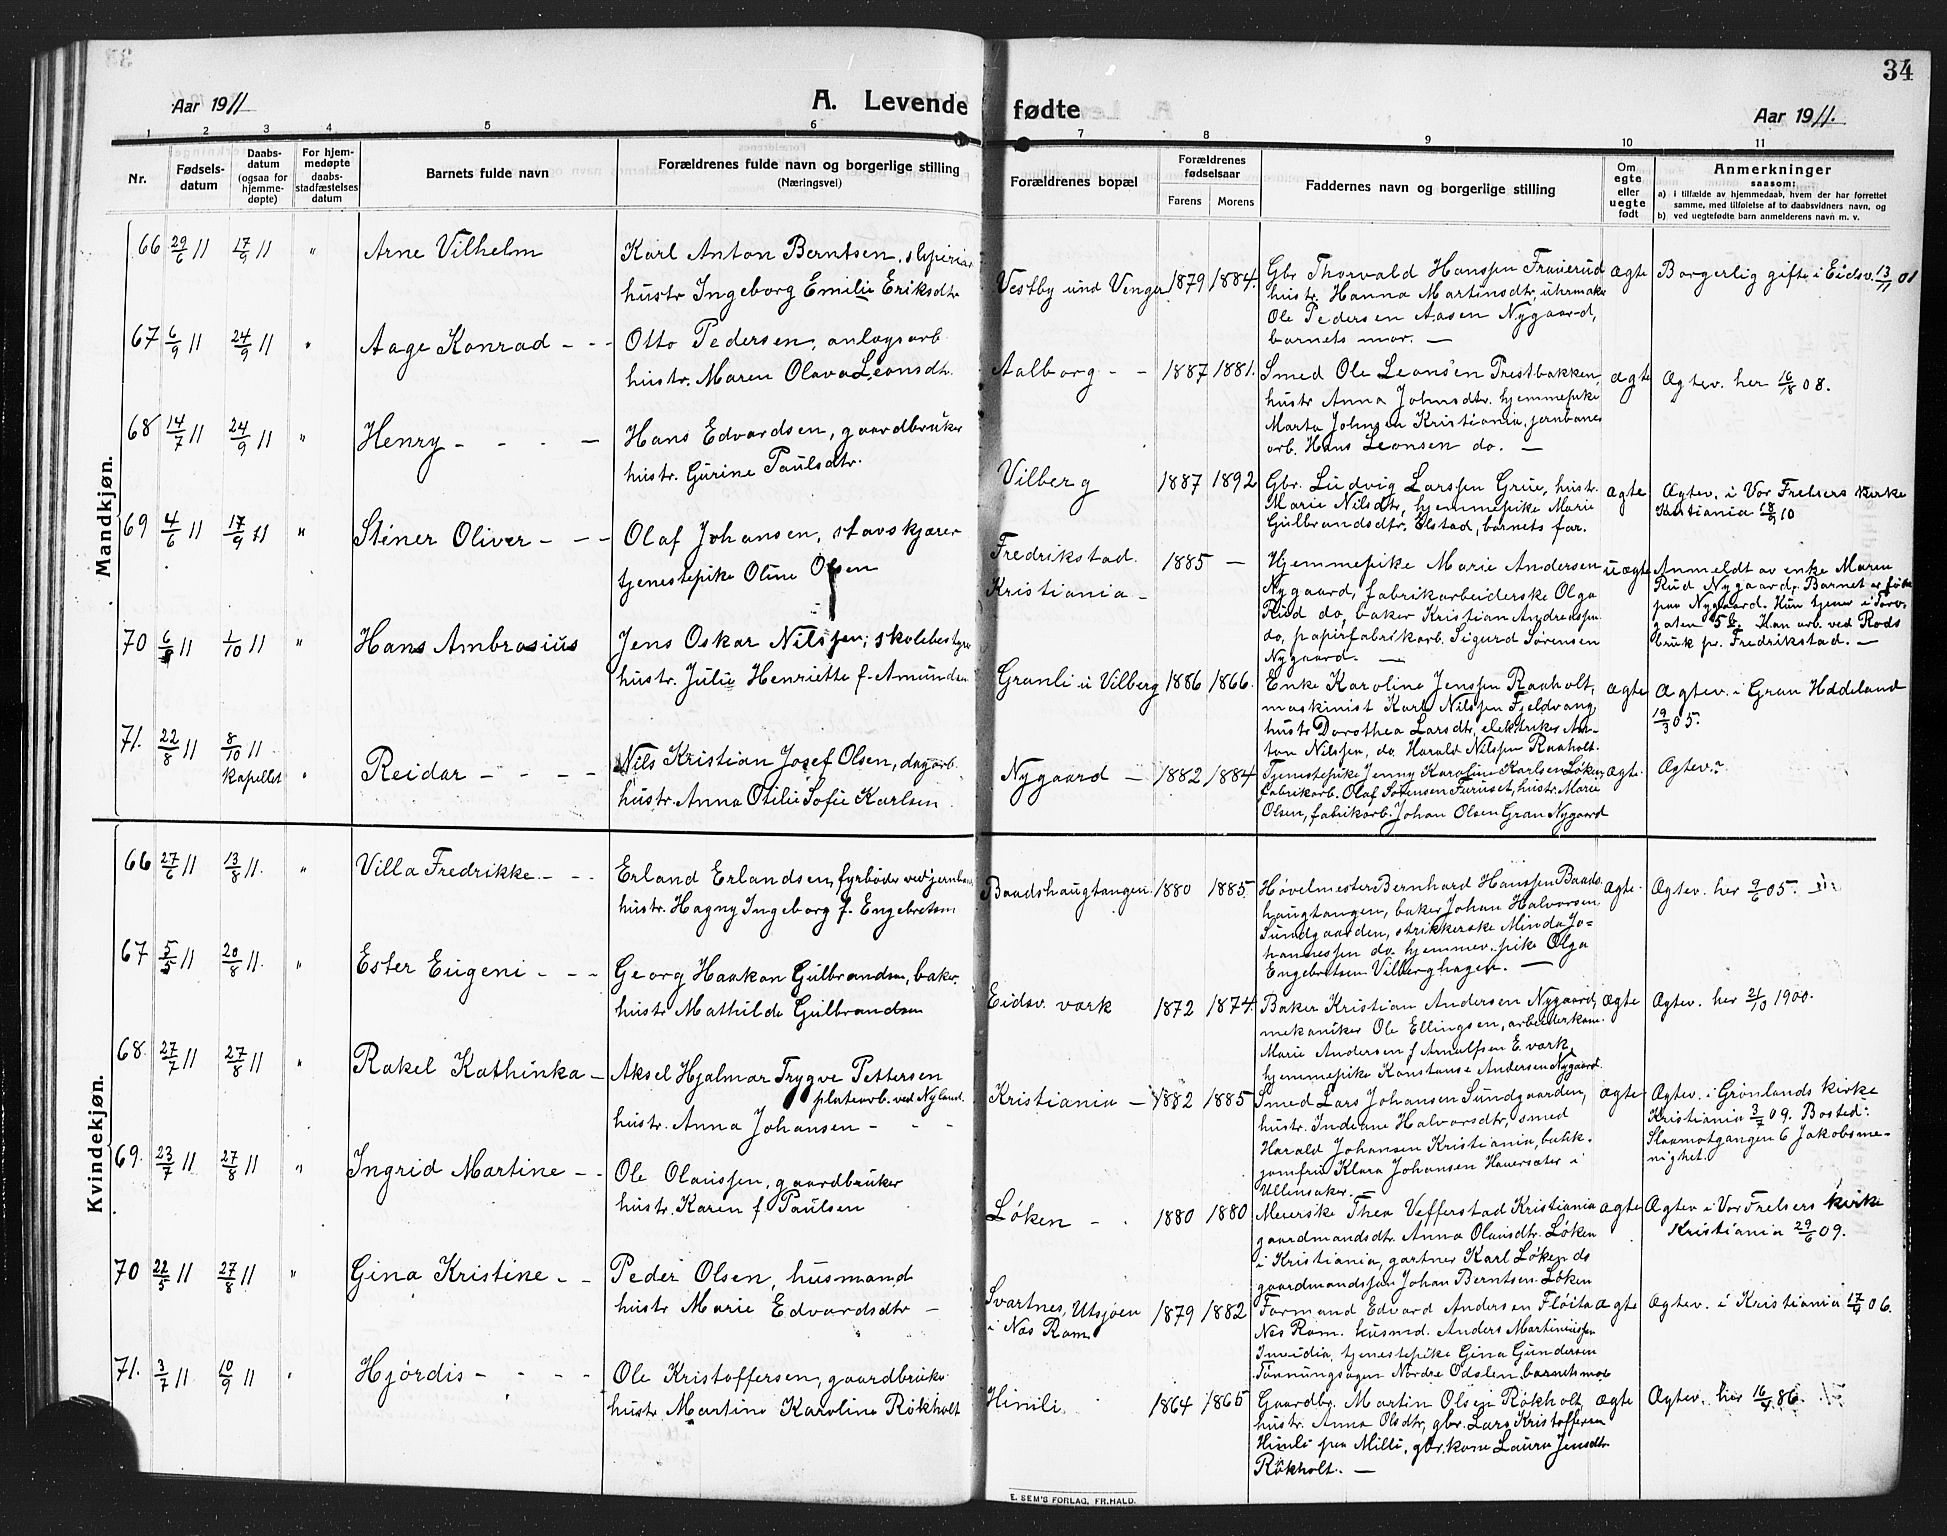 34
Aar 1911
A. Levende fødte
Aar 1911.
1 2 3 4 5 6 7 8 9 10 11
Nr.
Fødsels-
datum
Daabs-
datum
(ogsaa for
hjemme-
døpte)
For hjem-
medøpte
daabs-
stadfæstelses
datum
Barnets fulde navn
Forældrenes fulde navn og borgerlige stilling
(Næringsvei)
Forældrenes bopæl
Forældrenes
fødselsaar
Farens Morens
Faddernes navn og borgerlige stilling
Om
egte
eller
uegte
født
Anmerkninger
saasom:
a) i tilfælde av hjemmedaab, hvem der har forrettet
samme, med tilføielse af to daabsvidners navn, og
b) ved uegtefødte barn anmelderens navn m. v.
Mandkjøn.
66 29/6 11 17/9 11 " Arne Vilhelm
Karl Anton Berntsen,
hustr. Ingeborg Emilie Eriksdtr
Vestby und Venger 1879 1884.
Gbr. Thorvald Hanssen Frauerud
hustr. Hanna Martinsdtr, uhrmaker
Ole Pedersen Aasen Nygaard,
barnets mor. —
ægte
Borgerlig gifte i Eidsv. 13/11 01
67 6/9 11 24/9 11 " Aage Konrad - -
Otto Pedersen, anlægsarb
hustr. Maren Olava Leonsdtr.
Aalborg - - 1887 1881.
Smed Ole Leonsen Prestbakken,
hustr Anna Johnsdtr. hjemmepike
Marta Johnsen Kristiania, jernbane
arb. Hans Leonsen do. —
ægte
Ægtev. her 16/8 08.
68 14/7 11 24/9 11 " Henry - - - -
Hans Edvardsen, gaardbruker
hustr. Gurine Paulsdtr.
Vilberg 1887 1892
Gbr. Ludvig Larssen Grue, hustr.
Marie Nilsdtr, hjemmepike Marie
Gulbrandsdtr. Elstad, barnets far.
ægte
Ægtev. i Vor Frelsers kirke
Kristiania 18/9 10
69 4/6 11 17/9 11 " Stener Oliver - - -
Olaf Johansen, stavskjærer
tjenestepike Oline Olsen
Fredrikstad.
Kristiania -
1885 —
Hjemmepike Marie Andersen
Nygaard, fabrikarbeiderske Olga
Rud do, baker Kristian Andreassen
do, papirfabrikarb. Sigurd Sørensen
Nygaard. —
uægte
Anmeldt av enke Maren
Rud Nygaard, Barnet er født
paa Nygaard. Hun tjener i Torv-
gaten 5b. Han arb. ved Rods
bruk pr. Fredrikstad. —
70 1/10 11 " Hans Ambrosius
Jens Oskar Nilssen, skolebestyrer
hustr. Julie Henriette f. Amundsen
Granli u Vilberg 1886 1866.
Enke Karoline Jenssen Raaholt,
maskinist Karl Nilssen Fjeldvang,
hustr Dorothea Larsdtr, elektriker An-
ton Nilssen, do. Harald Nilssen Raaholt.
ægte
Ægtev. i Gran Hadeland
19/3 05.
71. 22/8 11 8/10 11
Kapellet " Reidar - - - -
Nils Kristian Josef Olsen, dagarb.
hustr. Anna Otilie Sofie Karlsen
Nygaard - 1882 1884
Tjenestepike Jenny Karoline Karlsen Løken
fabrikarb. Olaf Sørensen Furuset, hustr. Marie
Olsen, fabrikarb. Johan Olsen Gran Nygaard
ægte.
Ægtev.?
Kvindekjøn.
66 27/6 11 13/8 11. " Villa Fredrikke - - -
Erland Erlandsen, fyrbøder ved jernban.
hustr. Hagny Ingeborg f. Engebretsen
Baadshaugtangen 1880 1885.
Høvelmester Bernhard Hanssen Baads
haugtangen, baker Johan Halvorsen
Sundgaarden, strikkerske Minda Jo-
hannessen do. hjemmev. pike Olga
Engebretsen Vilberghagen. —
ægte.
Ægtev. her 9/6 05.
67 5/5 11 20/8 11. " Ester Eugeni - - -
Georg Haakon Gulbrandsen, baker.
hustr. Mathilde Gulbrandsen
Eidsv. værk 1872 1874.
Baker Kristian Andersen Nygaard,
mekaniker Ole Ellingsen, arbeiderkone
Marie Andersen f Arnulfsen E. værk,
hjemmepike Konstanse Andersen Nygaard.
ægte
Ægtev. her 21/10 1900.
68. 27/7 11 27/8 11 " Rakel Kathinka -
Aksel Hjalmar Trygve Pettersen
platearb. ved Nyland.
hustr. Anna Johansen - - -
Kristiania - 1882 1885
Smed Lars Johansen Sundgaarden,
hustr. Indiane Halvorsdtr, smed
Harald Johansen Kristiania, butik-
jomfru Klara Johansen Haversæter i
Ullensaker. —
ægte
Ægtev. i Grønlands kirke
Kristiania 3/7 09. Bosted:
Slaamotgangen 6 Jakobsme-
nighet.
69. 23/7 11 27/8 11 " Ingrid Martine - -
Ole Olaussen, gaardbruker
hustr. Karen f Paulsen
Løken - . 1880 1880
Meierske Thea Vefferstad Kristiania
gaardmandsdtr. Anna Olausdtr. Løken
i Kristiania, gartner Karl Løken ds
gaardmandssøn Johan Berntsen Løken
ægte
Ægtev i Vor Frelsers kirke
Kristiania 29/6 09.
70 22/5 11 27/8 11 " Gina Kristine - -
Peder Olsen, husmand
hustr Marie Edvardsdtr -
Svartnes, Utsjøen
i Nes Rom. 1879 1882
Formand Edvard Andersen Fløita
Nes Rom. husmd. Anders Martiniussen
tjenestepike Gina Gundersen
Tønnungsagen Nordre Odalen, barnets mor
ægte
Ægtev. i Kristiania 06.
71. 3/7 11 10/9 11 " Hjørdis - - - -
Ole Kristoffersen, gaardbruker
hustr. Martine Karoline Røkholt
Himli . 1864 1865
Gaardbr. Martin Olsen Røkholt,
hustr. Anna Olsdtr, gbr. Lars Kristoffersen
Himli paa Milli, gbr.kone Laura Jensdtr
Røkholt. —
ægte
Ægtev. her 86.
E. SEM'S FORLAG, FR.HALD.